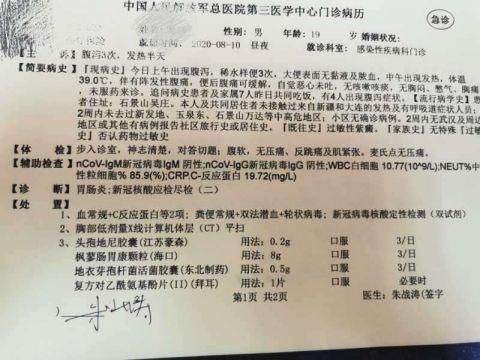 中国人民解放军总医院第三医学中心门诊病历
急诊
性别：男 年龄：19 岁 婚姻状况：
就诊时间：2020-08-10 昼夜 就诊科室：感染性疾病科门诊
【主 诉】 腹泻3次，发热半天
【简要病史】【现病史】今日上午出现腹泻，稀水样便3次，大便表面无黏液及脓血，中午出现发热，体温
39.0℃，伴有阵发腹痛，便后腹痛可缓解，自觉恶心未吐，无咳嗽咳痰，无胸闷、憋气、胸痛
，未服药来诊。追问病史患者及家属7人昨日共同吃饭，有4人出现腹泻症状。【流行病学史】患
者住址：石景山吴庄。本人及共同居住者未接触过来自新疆和大连的发热及有呼吸道症状人员；
2周内未去过新发地、玉泉东、石景山万达等中高危地区；小区无确诊病例。2周内无武汉及周边
地区或其他有病例报告社区旅行史或居住史。【既往史】过敏性紫癜。【家族史】无特殊【过敏
史】否认药物过敏史
【体 检】 步入诊室，神志清楚，对答切题；腹软，无压痛、反跳痛及肌紧张。麦氏点无压痛。
【辅助检查】nCoV-IgM新冠病毒IgM 阴性;nCoV-IgG新冠病毒IgG 阴性;WBC白细胞 10.77(10^9/L);NEUT%中
性粒细胞% 85.9(%);CRP.C-反应蛋白 19.72(mg/L)
【诊 断】 胃肠炎;新冠核酸应检尽检（二）
【处 置】
1、血常规+C反应蛋白等2项；粪便常规+双法潜血+轮状病毒；新冠病毒核酸定性检测（双试剂）
2、胸部低剂量X线计算机体层（CT）平扫
3、头孢地尼胶囊(江苏豪森) 用法：0.2g 口服 3/日
枫蓼肠胃康颗粒(海口) 用法：8g 口服 3/日
地衣芽孢杆菌活菌胶囊(东北制药) 用法：0.5g 口服 3/日
复方对乙酰氨基酚片(II)(拜耳) 用法：1片 口服 必要时
第1页 共2页 医生：朱战涛(签字)